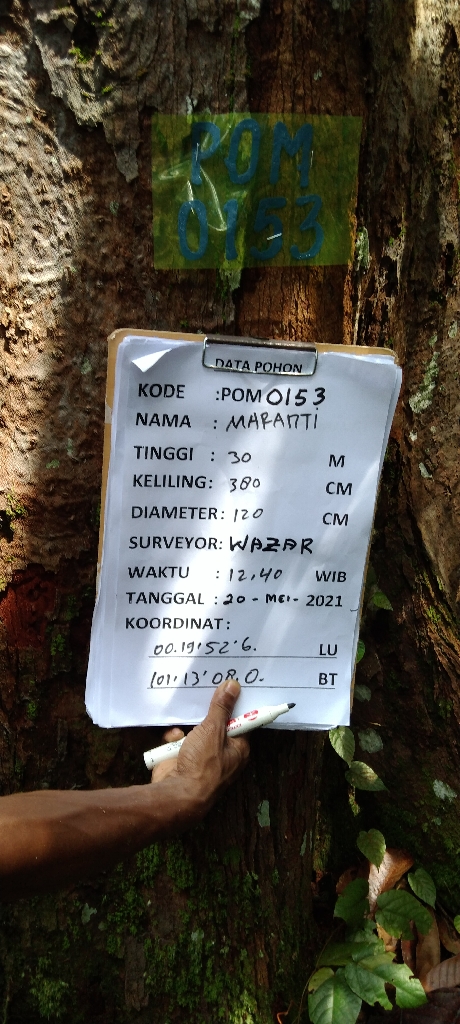 POM
0153
DATA POHON
KODE :POM 0153
NAMA : MARANTI
TINGGI : 30 M
KELILING: 380 CM
DIAMETER: 120 CM
SURVEYOR: WAZAR
WAKTU : 12.40 WIB
TANGGAL : 20 - MEI - 2021
KOORDINAT:
00.19'52'6. LU
101.13'08.0. BT